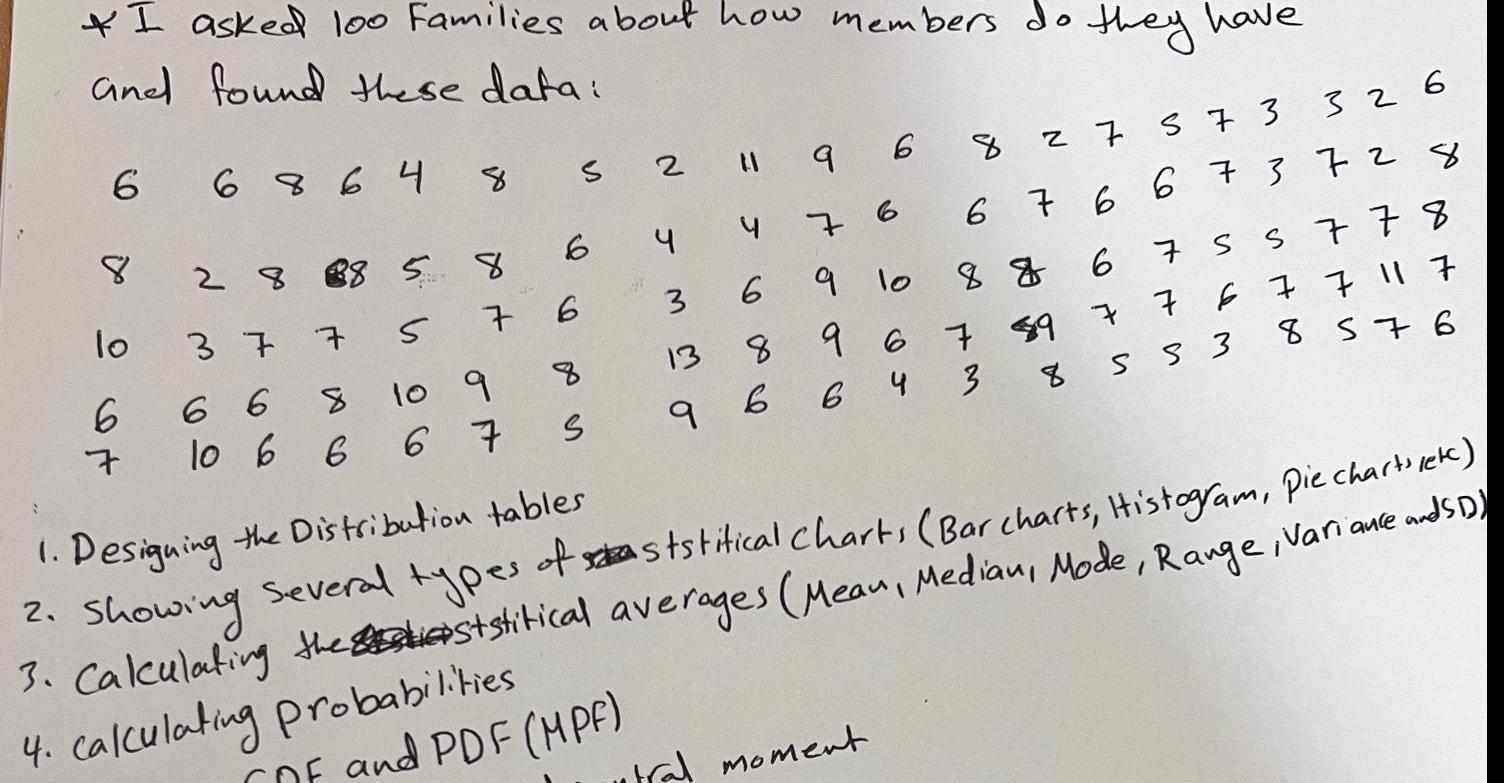 * I asked 100 Families about how members do they have
and found these data:
6 6 8 6 4 8 5 2 11 9 6 8 2 7 5 7 3 3 2 6
8 2 8 8 5 8 6 4 4 7 6 6 7 6 6 7 3 7 2 8
10 3 7 7 5 7 6 3 6 9 10 8 8 6 7 5 5 7 7 8
6 6 6 8 10 9 8 13 8 9 6 7 9 7 7 6 7 7 11 7
7 10 6 6 6 7 5 9 6 6 4 3 8 5 5 3 8 5 7 6
1. Designing the Distribution tables
2. Showing several types of ststitical charts (Bar charts, Histogram, Pie charts, etc)
3. Calculating the ststitical averages (Mean, Median, Mode, Range, Variance and SD)
4. Calculating probabilities
CDF and PDF (MPF)
moment